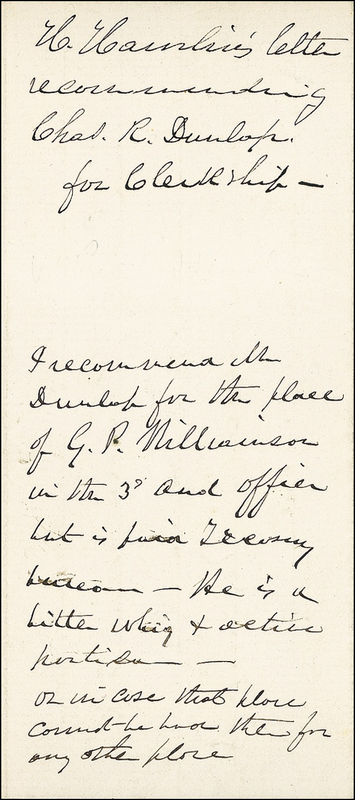 H. Hamlin's letter
recommending
Chas. R. Dunlap.
for Clerkship —
I recommend Mr
Dunlap for the place
of G. P. Williamson
in the 3d Aud office
but is paid Treasury
bureau — He is a
bitter Whig & active
partisan —
or in case that place
cannot be had then for
any other place